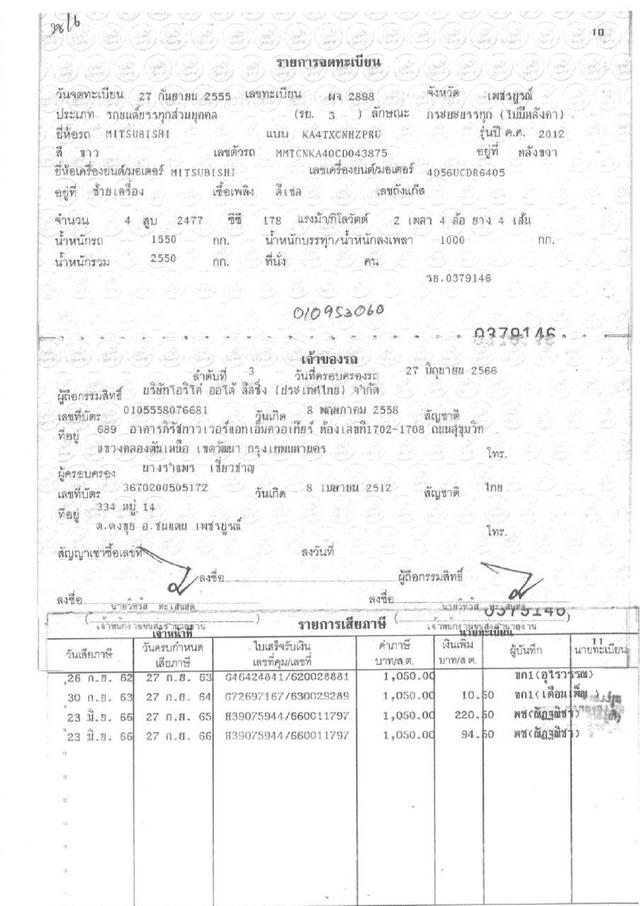 10
รายการจดทะเบียน
วันจดทะเบียน 27 กันยายน 2555 เลขทะเบียน ผจ 2898 จังหวัด เพชรบูรณ์
ประเภท รถยนต์บรรทุกส่วนบุคคล (รย. 3 ) ลักษณะ กระบะบรรทุก (ไม่มีหลังคา)
ยี่ห้อรถ MITSUBISHI แบบ KA4TXCNHZPRU รุ่นปี ค.ศ. 2012
สี ขาว เลขตัวรถ MMTCNKA40CD043875 อยู่ที่ หลังขวา
ยี่ห้อเครื่องยนต์/มอเตอร์ MITSUBISHI เลขเครื่องยนต์/มอเตอร์ 4D56UCDR6405
อยู่ที่ ซ้ายเครื่อง เชื้อเพลิง ดีเซล เลขถังแก๊ส
จำนวน 4 สูบ 2477 ซีซี 178 แรงม้า/กิโลวัตต์ 2 เพลา 4 ล้อ ยาง 4 เส้น
น้ำหนักรถ 1550 กก. น้ำหนักบรรทุก/น้ำหนักลงเพลา 1000 กก.
น้ำหนักรวม 2550 กก. ที่นั่ง คน
รย.0379146
010953060
0379146
เจ้าของรถ
ลำดับที่ 3 วันที่ครอบครองรถ 27 มิถุนายน 2566
ผู้ถือกรรมสิทธิ์ บริษัทโอริโค่ ออโต้ ลีสซิ่ง (ประเทศไทย) จำกัด
เลขที่บัตร 0105558076681 วันเกิด 8 พฤษภาคม 2558 สัญชาติ
ที่อยู่ 689 อาคารภิรัชทาวเวอร์แอทเอ็มควอเทียร์ ห้องเลขที่1702-1708 ถนนสุขุมวิท
แขวงคลองตันเหนือ เขตวัฒนา กรุงเทพมหานคร โทร.
ผู้ครอบครอง นางรำแพร เชี่ยวชาญ
เลขที่บัตร 3670200505172 วันเกิด 8 เมษายน 2512 สัญชาติ ไทย
ที่อยู่ 334 หมู่ 14
ต.ดงขุย อ.ชนแดน เพชรบูรณ์ โทร.
สัญญาเช่าซื้อเลขที่ ลงวันที่
ลงชื่อ ผู้ถือกรรมสิทธิ์
ลงชื่อ ลงชื่อ
0379146
รายการเสียภาษี
เจ้าหน้าที่ นายทะเบียน
11
วันเสียภาษี วันครบกำหนดเสียภาษี ใบเสร็จรับเงิน เลขที่คุม/เลขที่ ค่าภาษี บาท/ส.ต. เงินเพิ่ม บาท/ส.ต. ผู้บันทึก นายทะเบียน
26 ก.ย. 62 27 ก.ย. 63 G46424841/620028881 1,050.00 ขก1(อุไรวรรณ)
30 ก.ย. 63 27 ก.ย. 64 G72697167/630029289 1,050.00 10.50 ขก1(เดือนเพ็ญ )
23 มิ.ย. 66 27 ก.ย. 65 H39075944/660011797 1,050.00 220.50 พช(ณัฏฐพิชา)
23 มิ.ย. 66 27 ก.ย. 66 H39075944/660011797 1,050.00 94.50 พช(ณัฏฐพิชา)